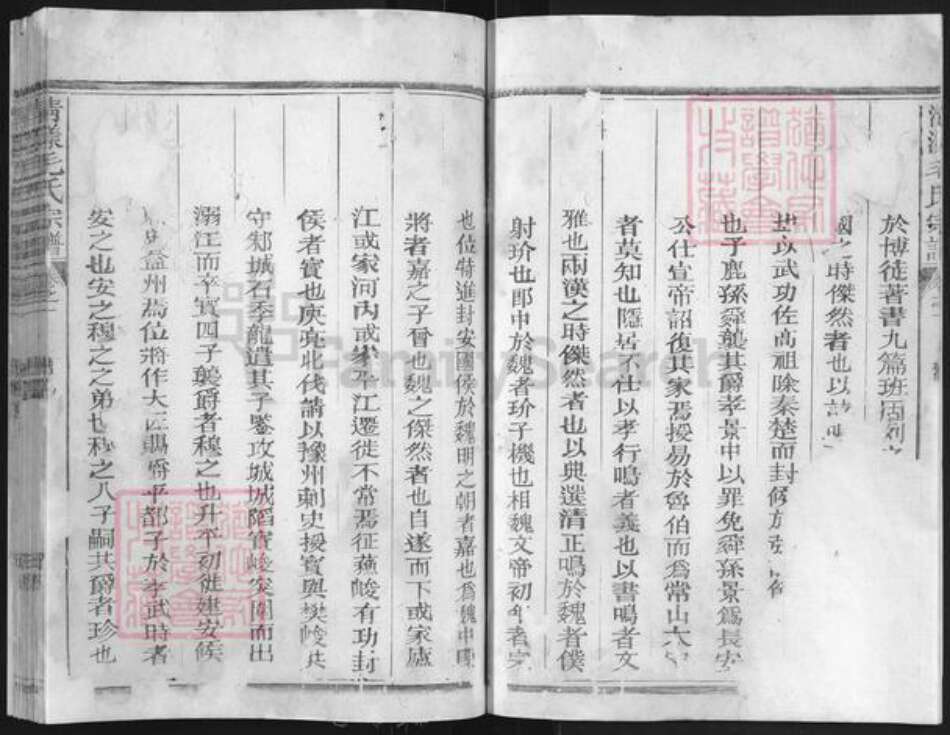 毛氏宗譜
於博徒著書九篇班固列之
國之時傑然者也以
以武功佐高祖除秦楚而封侯於
也子鹿孫舜襲其爵孝景中以罪免舜孫景爲長安
公仕宣帝詔復其家焉授易於魯伯而爲常山太
者莫知也隱居不仕以孝行鳴者義也以書鳴者文
雅也兩漢之時傑然者也以典選清正鳴於魏者僕
射玠也郎中於魏者玠子機也相魏文帝初年者宗
也位特進封安國侯於魏明之朝者嘉也爲魏中
將者嘉之子曾也魏之傑然者也自遂而下或家廬
江或家河內或滎平江遷徙不常焉征燕峻有功封
侯者寶也庾亮北伐請以豫州刺史授寶與樊峻共
守邾城石季龍遣其子鑒攻城城陷寶峻突圍而出
溺江而卒寶四子襲爵者穆之也升平初徙建安侯
益州焉位將作大匠賜爵平都子於孝武時者
安之也安之穆之之弟也穆之八子嗣其爵者珍也
清漾毛氏宗譜
FamilySearch